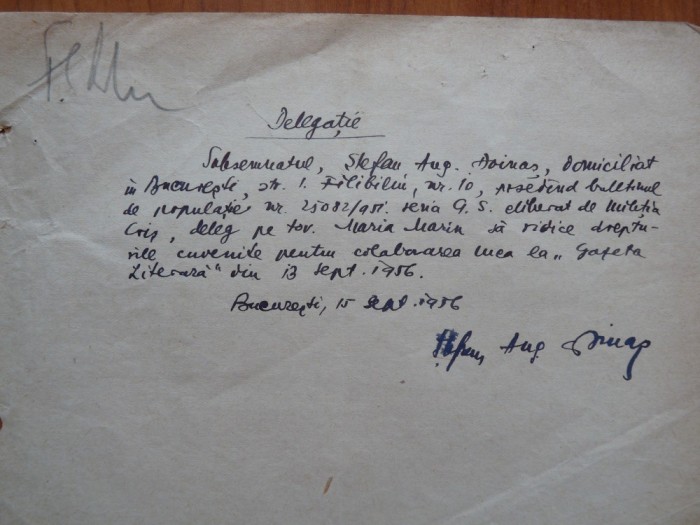 Delegație
Subsemnatul, Ștefan Aug. Doinaș, domiciliat
în București, str. I. Filibiliu, nr. 10, posedînd buletinul
de populație nr. 25082/951. seria G.S. eliberat de Miliția
Criș, deleg pe tov. Maria Marin să ridice dreptu-
rile cuvenite pentru colaborarea mea la „Gazeta
Literară" din 13 sept. 1956.
București, 15 sept. 1956
Ștefan Aug. Doinaș